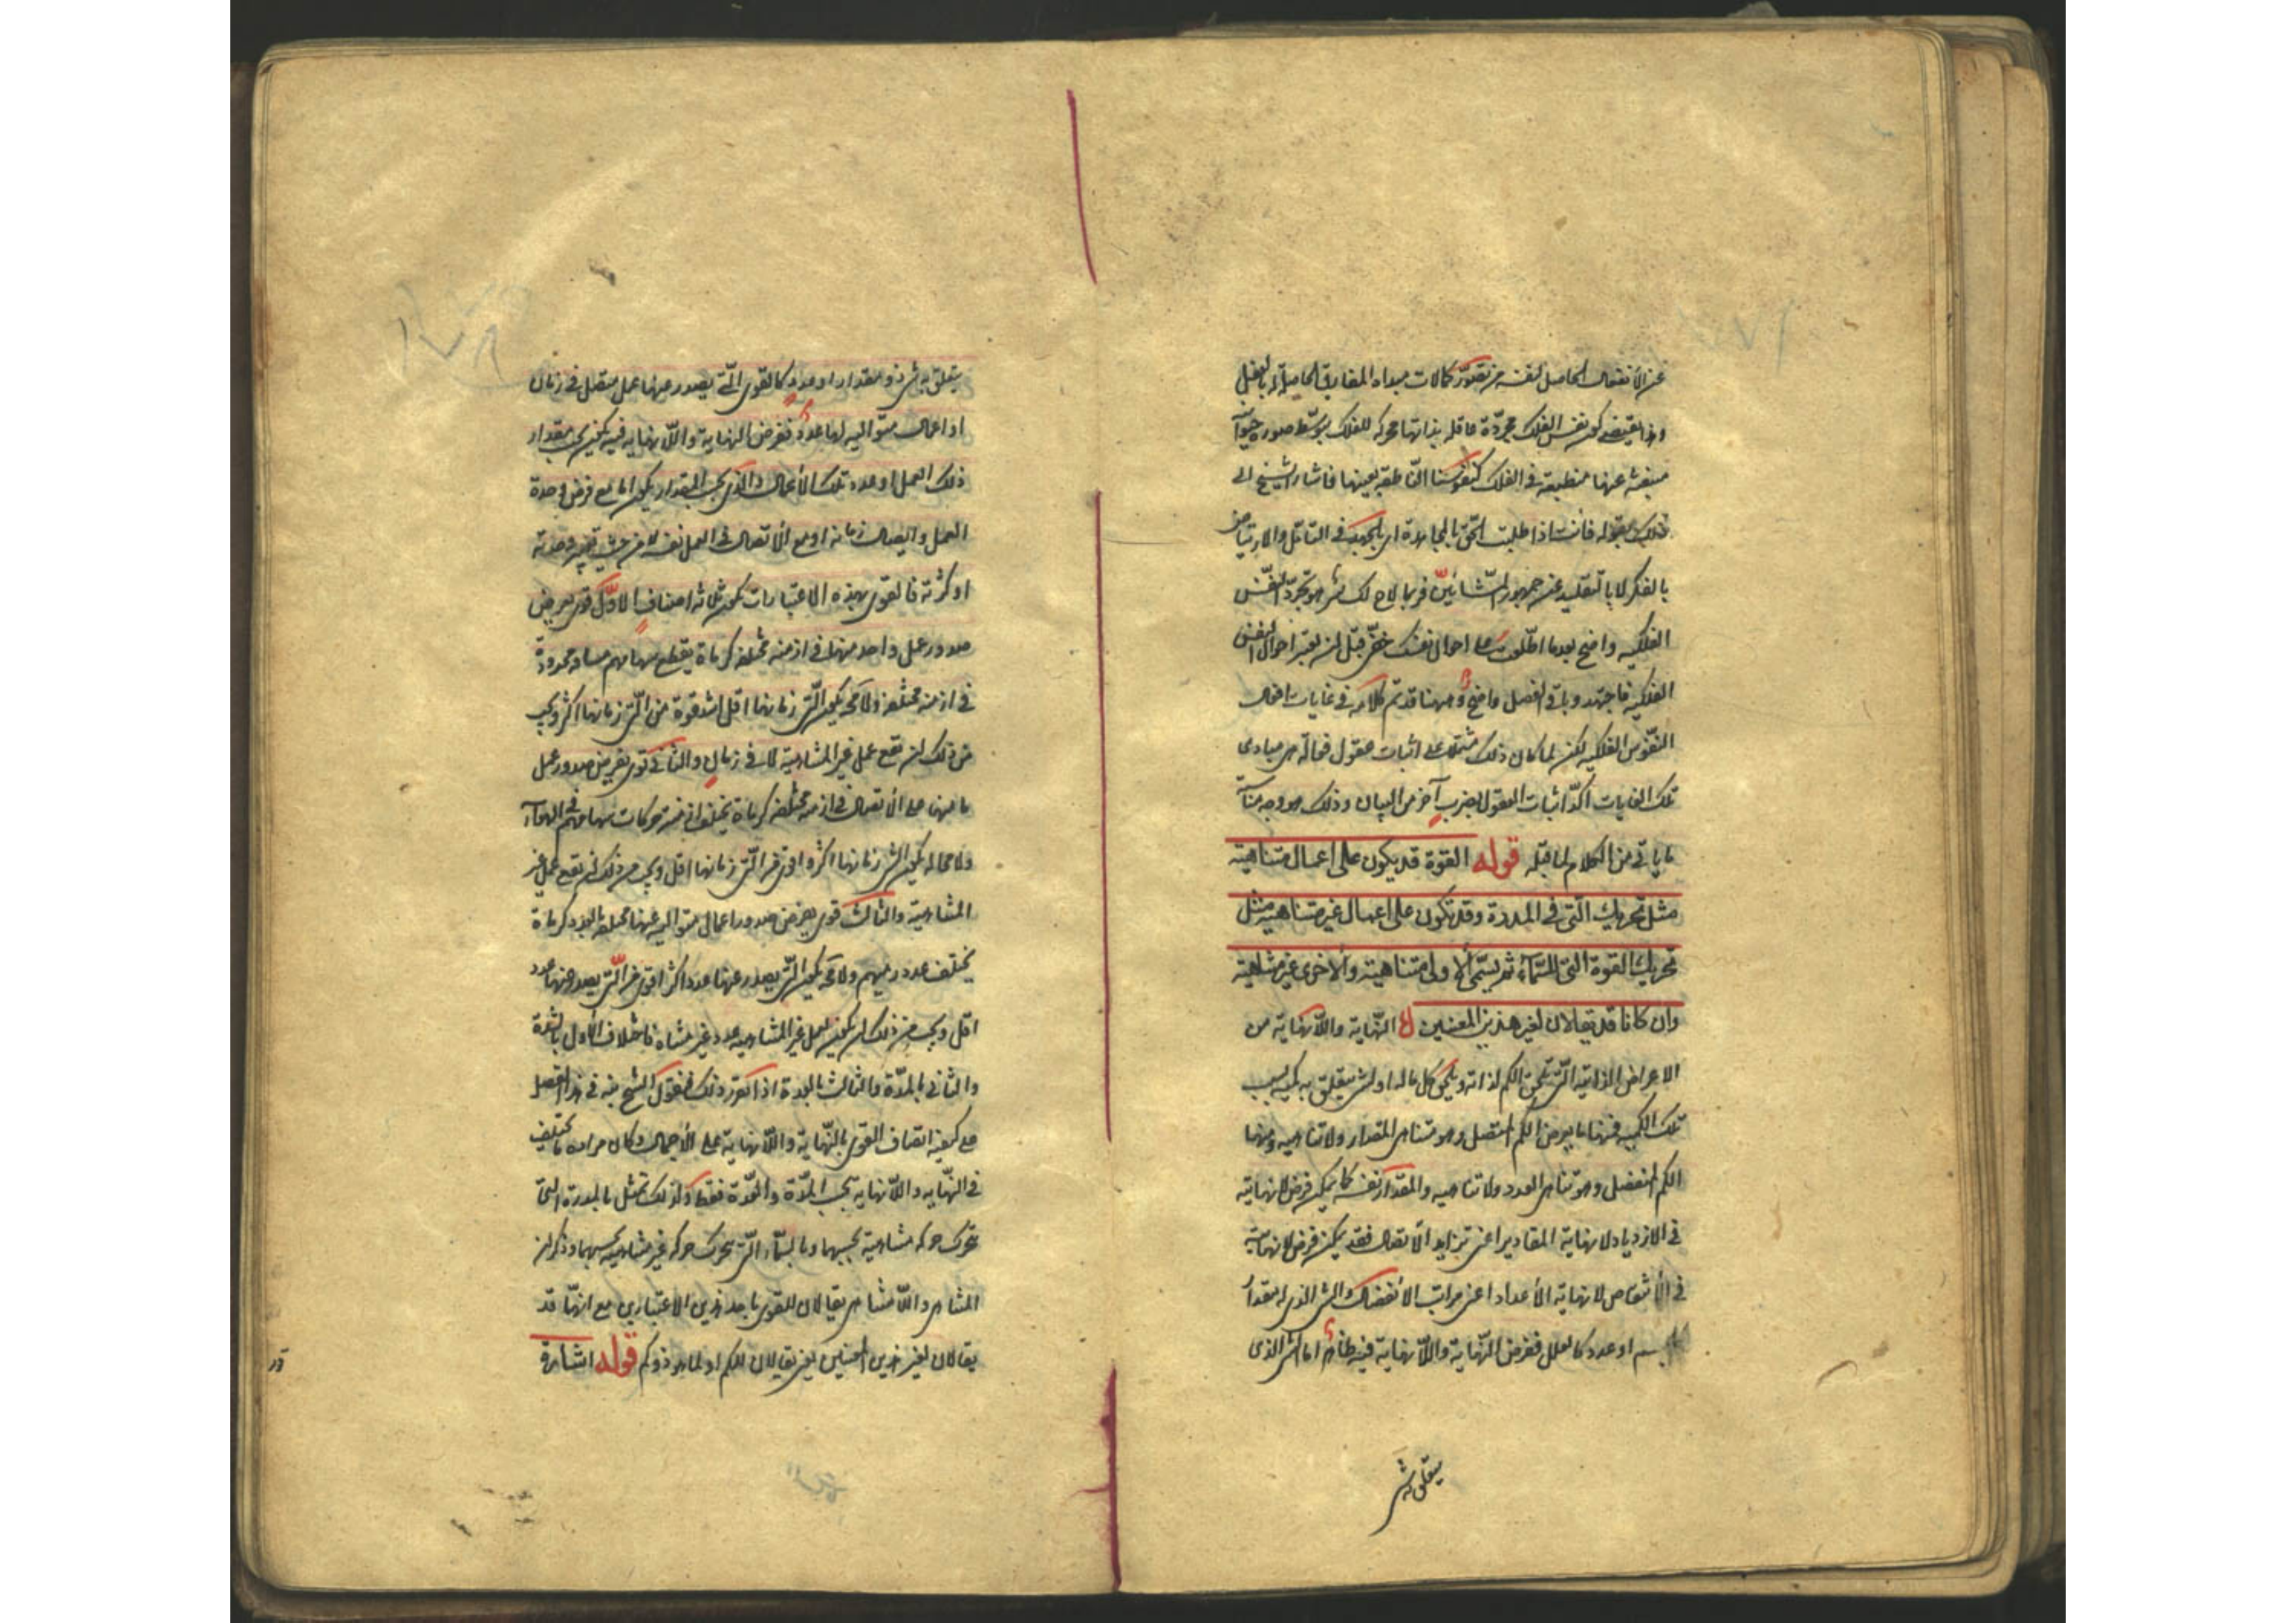 عن الانفعال الحاصل لنفسه من تصور كمالات مبدأه المفارق الحاصلة له بالفعل
وهذا يقتضى كون نفس الفلك مجردة عاقلة بذاتها محركة للفلك بتوسط صورة حيوانية
منبعثة عنها منطبعة فى الفلك كنفوسنا الناطقة بعينها فاشار الشيخ الى
ذلك بقوله فانت اذا طلبت الحق بالمجاهدة اى بالجهد فى التأمل والارتياض
بالفكر لا بالتقليد عن جمهور المشائين فربما لاح لك سر هو تجرد النفس
الفلكية واضح بعدما اطلعت على احوال نفسك خفى قبل ان يعتبر احوال النفس
الفلكية فاجتهد وباقى الفصل واضح وههنا قد تم كلامه فى غايات افعال
النفوس الفلكية لكن لما كان ذلك مشتملا على اثبات عقول فعالة هى مبادى
تلك الغايات اكد اثبات العقول بضرب آخر من البيان وذلك هو وجه مناسبة
ما ياتى من الكلام لما قبله قوله القوة قد يكون على اعمال متناهية
مثل تحريك التى فى المدرة وقد تكون على اعمال غير متناهية مثل
تحريك القوة التى للسماء ثم يسمى الاولى متناهية والاخرى غير متناهية
وان كانا قد يقالان لغير هذين المعنيين النهاية واللانهاية من
الاعراض الذاتية التى تلحق الكم لذاته ويلحق كل ماله او لشىء يتعلق به كمية بسبب
تلك الكمية فمنها ما يعرض الكم المتصل وهو تناهى المقدار ولا تناهيه ومنها
الكم المنفصل وهو تناهى العدد ولا تناهيه والمقدار نفسه كما يمكن فرض لا نهايته
فى الازدياد لا نهاية المقادير اعنى تزايد الاتصال فقد يمكن فرض لا نهايته
فى الانتقاص لا نهاية الاعداد اعنى مراتب الانفصال والشىء الذى له مقدار
كالجسم او عدد كالعلل ففرض النهاية واللانهاية فيه ظاهر اما الشىء الذى
يتعلق به شىء
يتعلق به شىء ذو مقدار او عدد كالقوى التى يصدر عنها عمل متصل فى زمان
او اعمال متوالية لها عدد ففرض النهاية واللانهاية فيه يكون بحسب مقدار
ذلك العمل او عدد تلك الاعمال والذى بحسب المقدار يكون اما مع فرض وحدة
العمل واتصال زمانه او مع فرض الاتصال فى العمل نفسه لا من حيث يعتبر وحدته
او كثرته فالقوى بهذه الاعتبارات تكون ثلاثة اصناف الاول قوى يفرض
صدور عمل واحد منها فى ازمنة مختلفة كرماة يقطع سهامهم مسافة محدودة
فى ازمنة مختلفة ولا محه يكون التى زمانها اقل اشد قوة من التى زمانها اكثر ويجب
من ذلك ان تقع عمل غير المتناهية لا فى زمان والثانى قوى يفرض صدور عمل
ما منها على الاتصال فى ازمنة مختلفة كرماة يختلف ازمنة حركات سهامهم فى الهواء
ولا محالة يكون التى زمانها اكثر اقوى من التى زمانها اقل ويجب من ذلك ان يقع عمل غير
المتناهية والثالث قوى يفرض صدور اعمال متوالية عنها مختلفة بالعدد كرماة
يختلف عدد رميهم ولا محه يكون التى يصدر عنها عدد اكثر اقوى من التى يصدر عنها عدد
اقل ويجب من ذلك ان يكون لعمل غير المتناهية عدد غير متناه فاختلاف الاول بالشدة
والثانى بالمدة والثالث بالعدة اذا تقرر ذلك فنقول الشيخ نبه فى هذا الفصل
مع كيفية اتصاف القوى بالنهاية واللانهاية على الاجمال وكان مراده ما يختلف
فى النهاية واللانهاية بحسب المدة والعدة فقط ولذلك تمثل بالمدرة التى
تتحرك حركة متناهية بحسبهما وبالسماء التى تتحرك حركة غير متناهية بحسبهما وذكر ان
المتناهى واللامتناهى يقالان للقوى باحد هذين الاعتبارين مع انهما قد
يقالان لغير هذين المعنيين يعنى يقالان للكم او لما هو ذو كم قوله اشارة